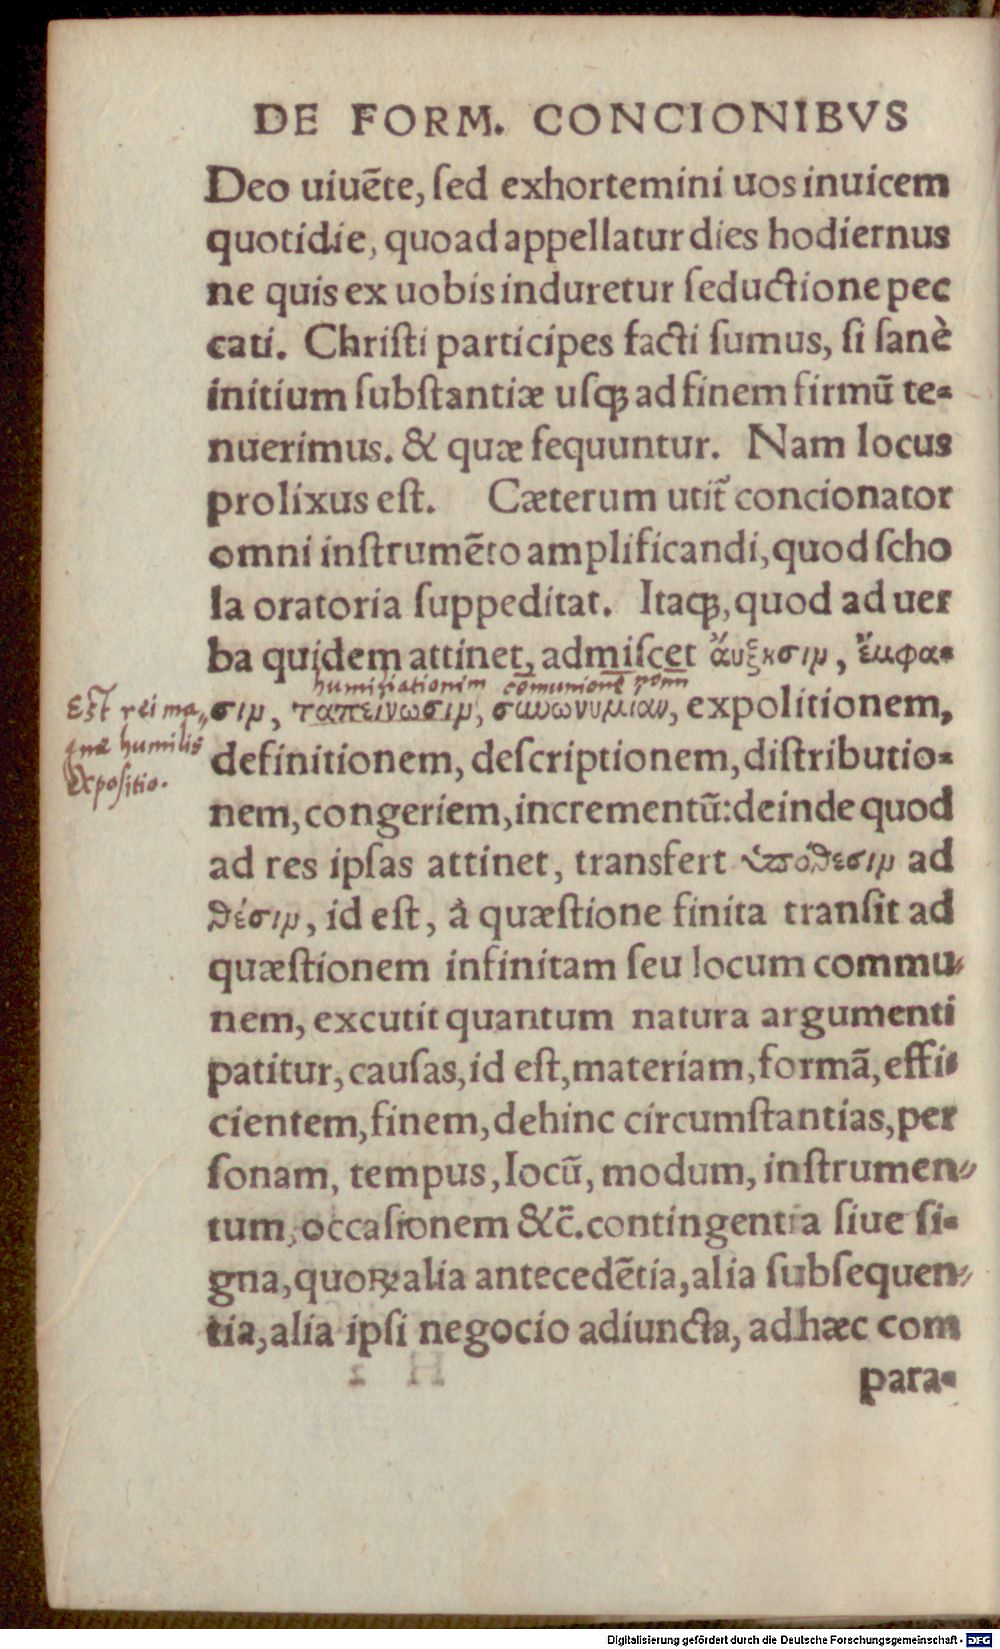 DE FORM. CONCIONIBVS
Deo uiuēte, ſed exhortemini uos inuicem
quotidie, quoad appellatur dies hodiernus
ne quis ex uobis induretur ſeductione pec
cati. Chriſti participes facti ſumus, ſi ſanè
initium ſubſtantiæ uſq; ad finem firmū te-
nuerimus. & quæ ſequuntur. Nam locus
prolixus eſt. Cæterum utit̃ concionator
omni inſtrumēto amplificandi, quod ſcho
la oratoria ſuppeditat. Itaq;, quod ad uer
ba quidem attinet, admiſcet ἄυξησιμ, ἔμφα-
humiliationem comunionē
Eſt rei ma„
σιμ, ταπείνωσιμ, συνωνυμίαν, expolitionem,
gnæ humilis
definitionem, deſcriptionem, diſtributio-
expoſitio.
nem, congeriem, incrementū: deinde quod
ad res ipſas attinet, transfert ὑπόθεσιμ ad
θέσιμ, id eſt, à quæſtione finita tranſit ad
quæſtionem infinitam ſeu locum commu-
nem, excutit quantum natura argumenti
patitur, cauſas, id eſt, materiam, formã, effi-
cientem, finem, dehinc circumſtantias, per
ſonam, tempus, locū, modum, inſtrumen-
tum, occaſionem &c̃. contingentia ſiue ſi-
gna, quoꝝ alia antecedētia, alia ſubſequen-
tia, alia ipſi negocio adiuncta, ad hæc com
para-
Digitalisierung gefördert durch die Deutsche Forschungsgemeinschaft - DFG